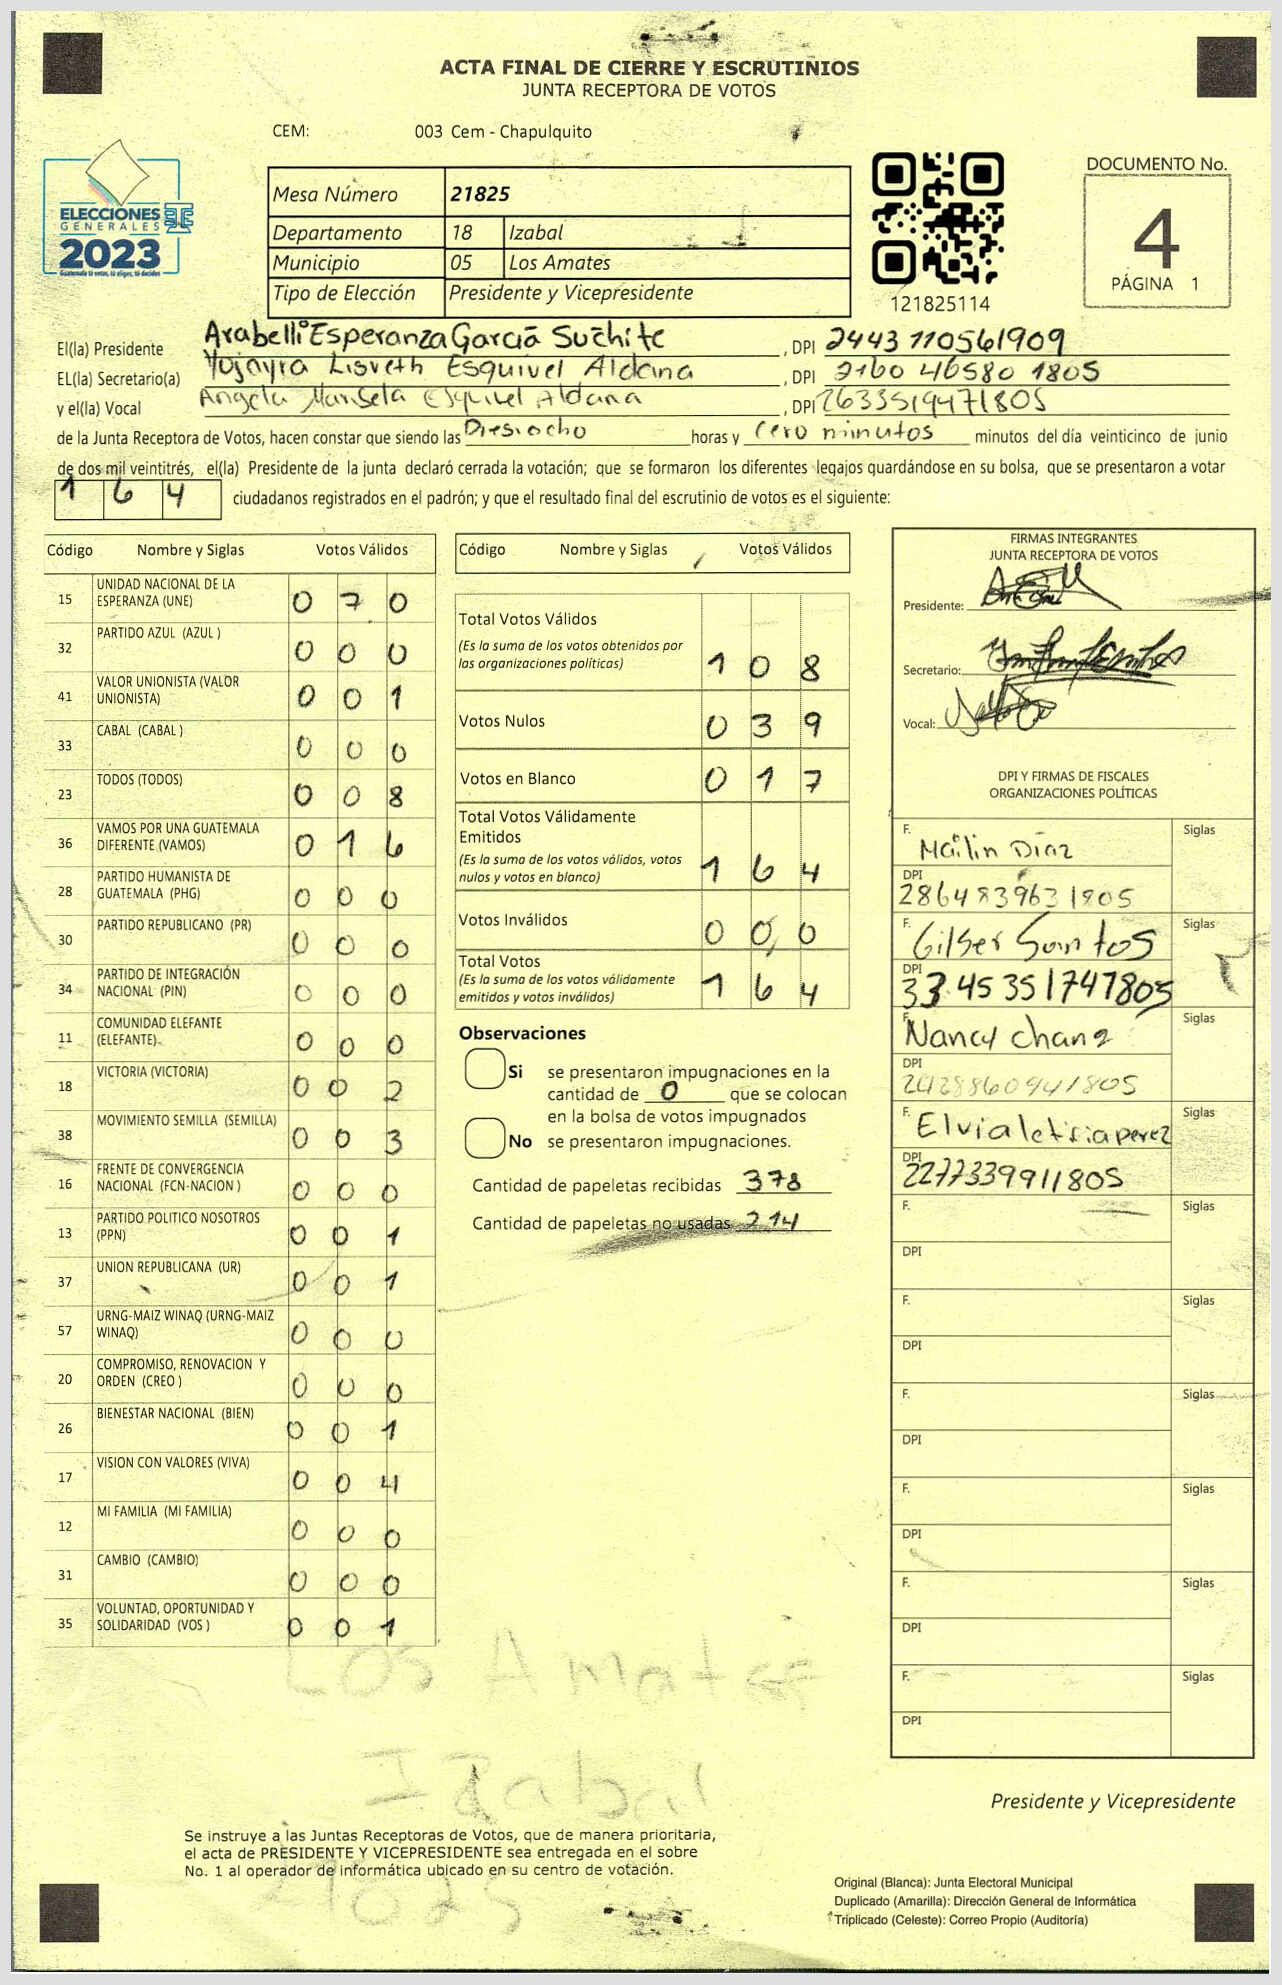 ACTA FINAL DE CIERRE Y ESCRUTINIOS
JUNTA RECEPTORA DE VOTOS
CEM: 003 Cem - Chapulquito
ELECCIONES
GENERALES
2023
Guatemala tú votas, tú eliges, tú decides
Mesa Número 21825
Departamento 18 Izabal
Municipio 05 Los Amates
Tipo de Elección Presidente y Vicepresidente
121825114
DOCUMENTO No.
4
PÁGINA 1
El(la) Presidente Arabelli Esperanza García Suchite, DPI 2443 110561909
EL(la) Secretario(a) Yojayra Lisveth Esquivel Aldana, DPI 2160 46580 1805
y el(la) Vocal Angela Marisela Esquivel Aldana, DPI 2633519471805
de la Junta Receptora de Votos, hacen constar que siendo las Diesiocho horas y Cero minutos minutos del día veinticinco de junio
de dos mil veintitrés, el(la) Presidente de la junta declaró cerrada la votación; que se formaron los diferentes legajos guardándose en su bolsa, que se presentaron a votar
1 6 4 ciudadanos registrados en el padrón; y que el resultado final del escrutinio de votos es el siguiente:
Código Nombre y Siglas Votos Válidos
15 UNIDAD NACIONAL DE LA
ESPERANZA (UNE) 0 7 0
32 PARTIDO AZUL (AZUL ) 0 0 0
41 VALOR UNIONISTA (VALOR
UNIONISTA) 0 0 1
33 CABAL (CABAL ) 0 0 0
23 TODOS (TODOS) 0 0 8
36 VAMOS POR UNA GUATEMALA
DIFERENTE (VAMOS) 0 1 6
28 PARTIDO HUMANISTA DE
GUATEMALA (PHG) 0 0 0
30 PARTIDO REPUBLICANO (PR) 0 0 0
34 PARTIDO DE INTEGRACIÓN
NACIONAL (PIN) 0 0 0
11 COMUNIDAD ELEFANTE
(ELEFANTE) 0 0 0
18 VICTORIA (VICTORIA) 0 0 2
38 MOVIMIENTO SEMILLA (SEMILLA) 0 0 3
16 FRENTE DE CONVERGENCIA
NACIONAL (FCN-NACION ) 0 0 0
13 PARTIDO POLITICO NOSOTROS
(PPN) 0 0 1
37 UNION REPUBLICANA (UR) 0 0 1
57 URNG-MAIZ WINAQ (URNG-MAIZ
WINAQ) 0 0 0
20 COMPROMISO, RENOVACION Y
ORDEN (CREO ) 0 0 0
26 BIENESTAR NACIONAL (BIEN) 0 0 1
17 VISION CON VALORES (VIVA) 0 0 4
12 MI FAMILIA (MI FAMILIA) 0 0 0
31 CAMBIO (CAMBIO) 0 0 0
35 VOLUNTAD, OPORTUNIDAD Y
SOLIDARIDAD (VOS ) 0 0 1
Código Nombre y Siglas Votos Válidos
Total Votos Válidos
(Es la suma de los votos obtenidos por
las organizaciones políticas) 1 0 8
Votos Nulos 0 3 9
Votos en Blanco 0 1 7
Total Votos Válidamente
Emitidos
(Es la suma de los votos válidos, votos
nulos y votos en blanco) 1 6 4
Votos Inválidos 0 0 0
Total Votos
(Es la suma de los votos válidamente
emitidos y votos inválidos) 1 6 4
Observaciones
Si se presentaron impugnaciones en la
cantidad de 0 que se colocan
en la bolsa de votos impugnados
No se presentaron impugnaciones.
Cantidad de papeletas recibidas 378
Cantidad de papeletas no usadas 214
FIRMAS INTEGRANTES
JUNTA RECEPTORA DE VOTOS
Presidente:
Secretario:
Vocal:
DPI Y FIRMAS DE FISCALES
ORGANIZACIONES POLÍTICAS
F. Mailin Díaz Siglas
DPI 2864839631805
F. Gilser Santos Siglas
DPI 3345351747805
F. Nancy Chang Siglas
DPI 2428860941805
F. Elvia leticia perez Siglas
DPI 2277339911805
F. Siglas
DPI
F. Siglas
DPI
F. Siglas
DPI
F. Siglas
DPI
F. Siglas
DPI
F. Siglas
DPI
Los Amates
Izabal
21825
Presidente y Vicepresidente
Se instruye a las Juntas Receptoras de Votos, que de manera prioritaria,
el acta de PRESIDENTE Y VICEPRESIDENTE sea entregada en el sobre
No. 1 al operador de informática ubicado en su centro de votación.
Original (Blanca): Junta Electoral Municipal
Duplicado (Amarilla): Dirección General de Informática
Triplicado (Celeste): Correo Propio (Auditoría)